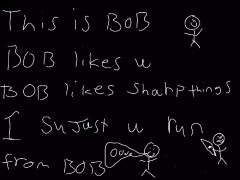 This is BOB
BOB likes u
BOB likes sharp things
I Sujust u run
from BOB